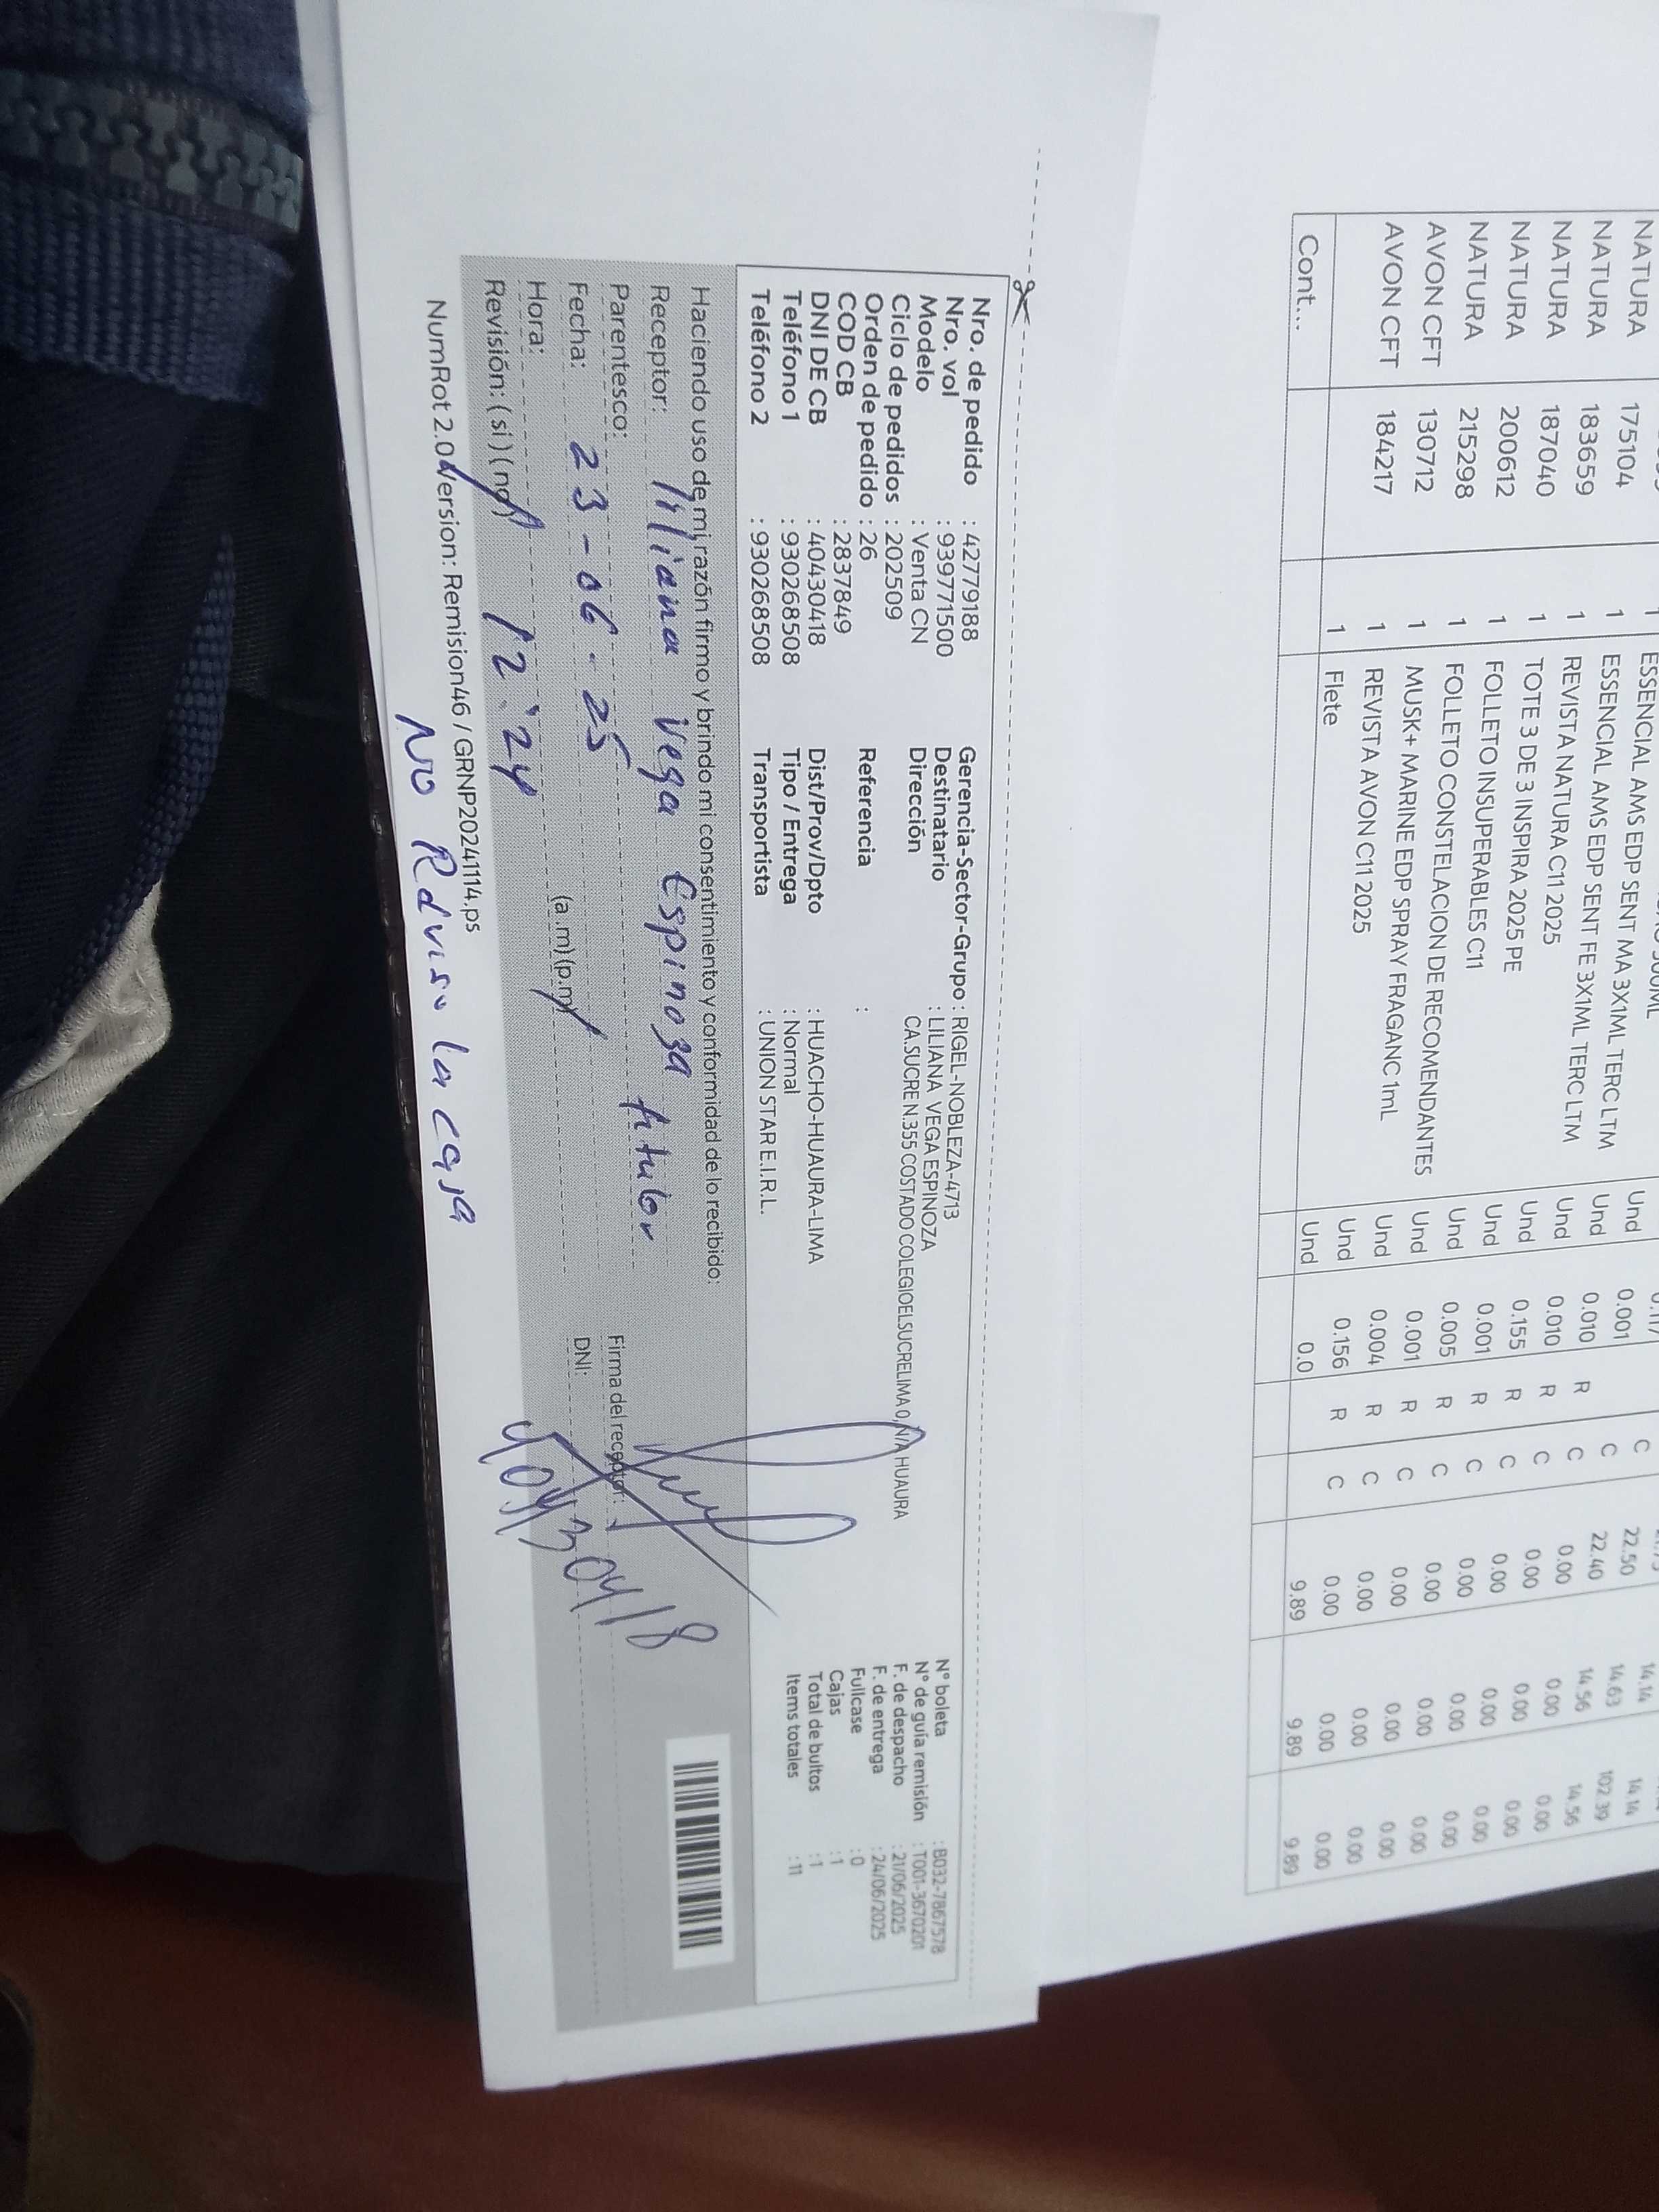 NATURA 175104 1 ESSENCIAL AMS EDP SENT MA 3X1ML TERC LTM Und 0.010 C 22.50 14.63 102.39
NATURA 183659 1 ESSENCIAL AMS EDP SENT FE 3X1ML TERC LTM Und 0.010 R C 22.40 14.56 14.56
NATURA 187040 1 REVISTA NATURA C11 2025 Und 0.155 R C 0.00 0.00 0.00
NATURA 200612 1 TOTE 3 DE 3 INSPIRA 2025 PE Und 0.001 R C 0.00 0.00 0.00
NATURA 215298 1 FOLLETO INSUPERABLES C11 Und 0.005 R C 0.00 0.00 0.00
AVON CFT 130712 1 FOLLETO CONSTELACION DE RECOMENDANTES Und 0.001 R C 0.00 0.00 0.00
AVON CFT 184217 1 MUSK+ MARINE EDP SPRAY FRAGANC 1mL Und 0.004 R C 0.00 0.00 0.00
1 REVISTA AVON C11 2025 Und 0.156 R C 0.00 0.00 0.00
Cont... 1 Flete Und 0.0 9.89 9.89 9.89
Nro. de pedido : 42779188 Gerencia-Sector-Grupo : RIGEL-NOBLEZA-4713 N° boleta :B032-7867578
Nro. vol : 939771500 Destinatario : LILIANA VEGA ESPINOZA N° de guía remisión : T001-3670201
Modelo : Venta CN Dirección CA.SUCRE N.355 COSTADO COLEGIOELSUCRELIMA 0, N/A HUAURA F. de despacho : 21/06/2025
Ciclo de pedidos : 202509 F. de entrega : 24/06/2025
Orden de pedido : 26 Referencia : Fullcase : 0
COD CB : 2837849 Cajas : 1
DNI DE CB : 40430418 Dist/Prov/Dpto : HUACHO-HUAURA-LIMA Total de bultos : 1
Teléfono 1 : 930268508 Tipo / Entrega : Normal Items totales : 11
Teléfono 2 : 930268508 Transportista : UNION STAR E.I.R.L.
Haciendo uso de mi razón firmo y brindo mi consentimiento y conformidad de lo recibido:
Receptor: liliana Vega Espinoza
Parentesco: titular Firma del receptor:
Fecha: 23-06-25 DNI: 40430418
Hora: 12:24 (a.m) (p.m)
Revisión: (si) (no)
NumRot 2.0 Version: Remision46 / GRNP20241114.ps
No Reviso la caja